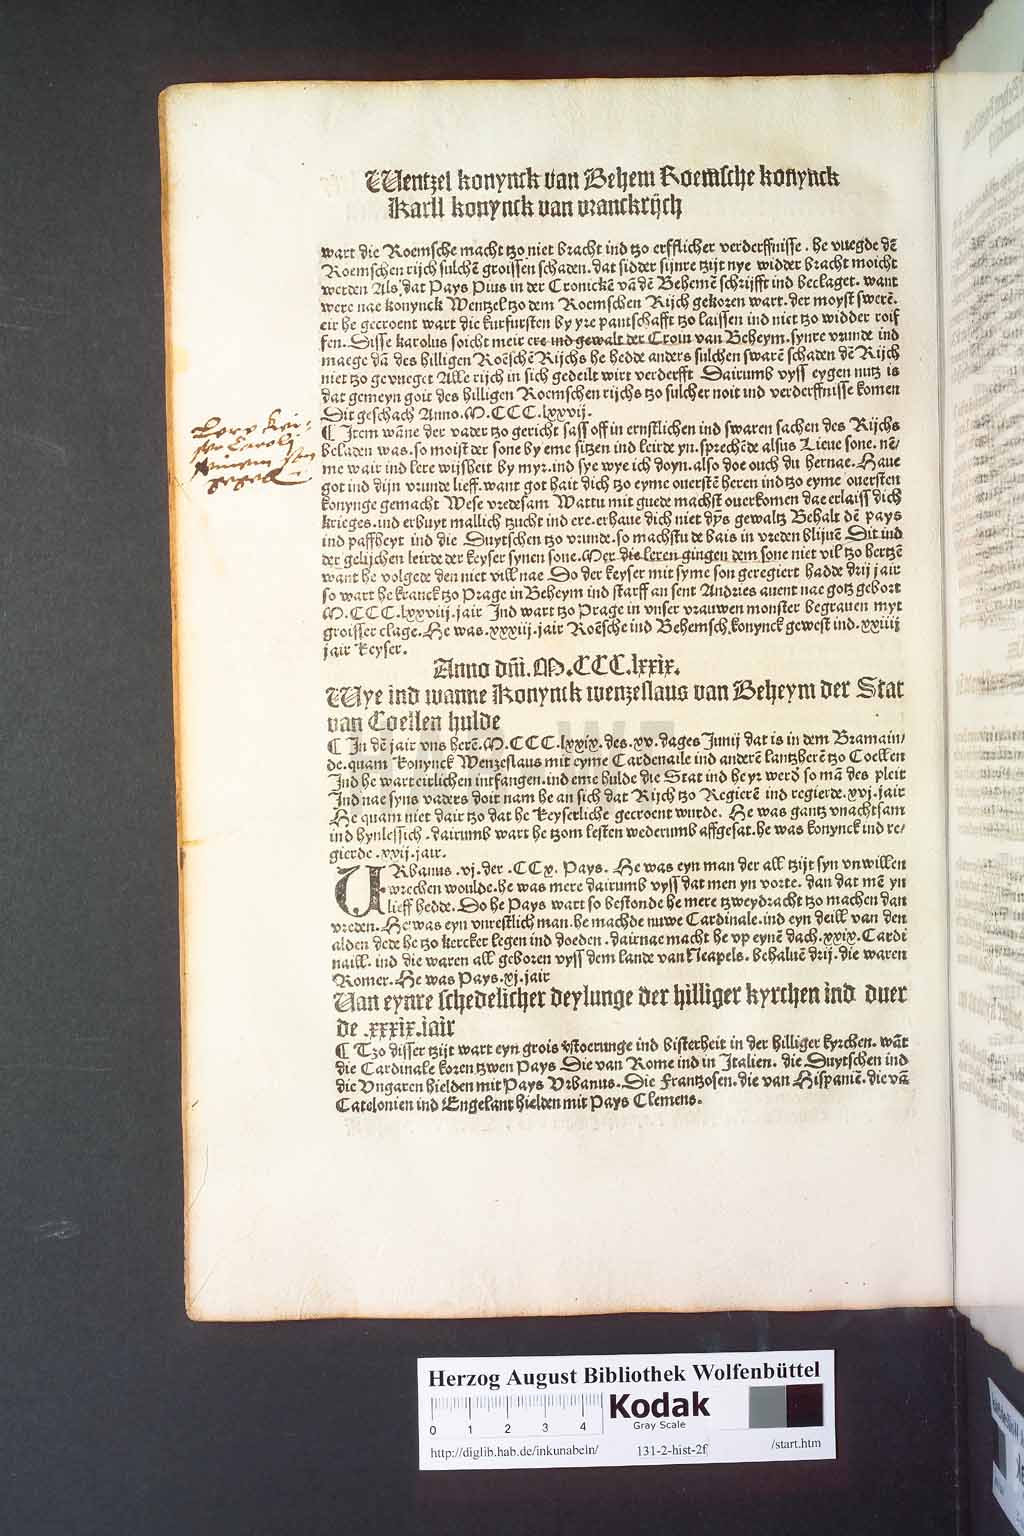 Wentzel konynck van Behem Roemsche konynck
Karll konynck van vranckrijch
wart die Roemsche macht tzo niet bracht ind tzo erfflicher verderffnisse. he vuegde dẽ
Roemschen rijch sulchẽ groissen schaden. dat sidder sijnre tzijt nye widder bracht moicht
werden Als, dat Pays Pius in der Cronickẽ vã dẽ Behemẽ schrijfft ind beclaget. want
were nae konynck Wentzel tzo dem Roemschen Rijch gekoren wart. der moyst swerẽ.
eir he gecroent wart die kurfursten by yre pantschafft tzo laissen ind niet tzo widder roif
fen. Disse karolus soicht meir ere ind gewalt der Croin van Beheym. synre vrunde ind
maege dã des hilligen Roẽschẽ Rijchs he hedde anders sulchen swarẽ schaden dẽ Rijch
niet tzo gevueget Alle rijch in sich gedeilt wirt verderfft Dairumb vyss eygen nutz is
dat gemeyn goit des hilligen Roemschen rijchs tzo sulcher noit ind verderffnisse komen
Dit geschach Anno. M. CCC. lxxvij.
¶ Item wãne der vader tzo gericht sass off in ernstlichen ind swaren sachen des Rijchs
beladen was. so moist der sone by eme sitzen ind leirde yn. sprechẽde alsus Lieue sone. nẽ/
me wair ind lere wijsheit by myr. ind sye wye ich doyn. also doe ouch du hernae. Haue
got ind dijn vrunde lieff. want got hait dich tzo eyme ouerstẽ heren ind tzo eyme ouersten
konynge gemacht Wese vredesam Wattu mit guede machst ouerkomen dae erlaiss dich
krieges. ind erbuyt mallich tzucht ind ere. erhaue dich niet dys gewaltz Behalt dẽ pays
ind paffheyt ind die Duytschen tzo vrunde. so machstu de bais in vreden blijuẽ Dit ind
der gelijchen leirde der keyser synen sone. Mer die leren gingen dem sone niet vil tzo hertzẽ
want he volgede den niet vill nae Do der keyser mit syme son geregiert hadde drij jair
so wart he kranck tzo Prage in Beheym ind starff an sent Andries auent nae gotz gebort
M. CCC. lxxviij. jair Ind wart tzo Prage in vnser vrauwen monster begrauen myt
groisser clage. He was. xxxiij. jair Roẽsche ind Behemsch konynck gewest ind. xxiiij
jair keyser.
Lere Kei-
Anno dñi. M. CCC. lxxix.
Wye ind wanne Konynck wenzeslaus van Beheym der Stat
van Coellen hulde
¶ In dẽ jair vns herẽ. M. CCC. lxxix. des. xv. dages Junij dat is in dem Bramain/
de. quam Konynck Wenzeslaus mit eyme Cardenaile ind anderẽ lantzherẽ tzo Coellen
Ind he wart eirlichen intfangen. ind eme hulde die Stat ind he yr werd' so mã des pleit
Ind nae syns vaders doit nam he an sich dat Rijch tzo Regierẽ ind regierde. xvj. jair
He quam niet dair tzo dat he keyserliche gecroent wurde. He was gantz vnachtsam
ind hynlessich. dairumb wart he tzom lesten wederumb affgesat. he was konynck ind re/
gierde. xxij. jair.
URbanus. vj. der. CCx. Pays. He was eyn man der all tzijt syn vnwillen
wrechen woulde. he was mere dairumb vyss dat men yn vorte. dan dat mẽ yn
lieff hedde. Do he Pays wart so bestonde he mere tzweydracht tzo machen dan
vreden. He was eyn vnrestlich man. he machde nuwe Cardinale. ind eyn deill van den
alden dede he tzo kercker legen ind doeden. dairnae macht he vp eynẽ dach. xxix. Cardi
naill. ind die waren all geboren vyss dem lande van Neapels. behaluẽ drij. die waren
Romer. He was Pays. xj. jair
Uan eynre schedelicher deylunge der hilliger kyrchen ind duer
de .xxxix. iair
¶ Tzo disser tzijt wart eyn grois vstoerunge ind bisterheit in der hilliger kyrchen. wãt
die Cardinale koren tzwen Pays Die van Rome ind in Italien. die Duytschen ind
die Vngaren hielden mit Pays Vrbanus. Die Frantzosen. die van Hispaniẽ. die vã
Catelonien ind Engelant hielden mit Pays Clemens.
Herzog August Bibliothek Wolfenbüttel
0 1 2 3 4
Kodak
Gray Scale
http://diglib.hab.de/inkunabeln/ 131-2-hist-2f /start.htm